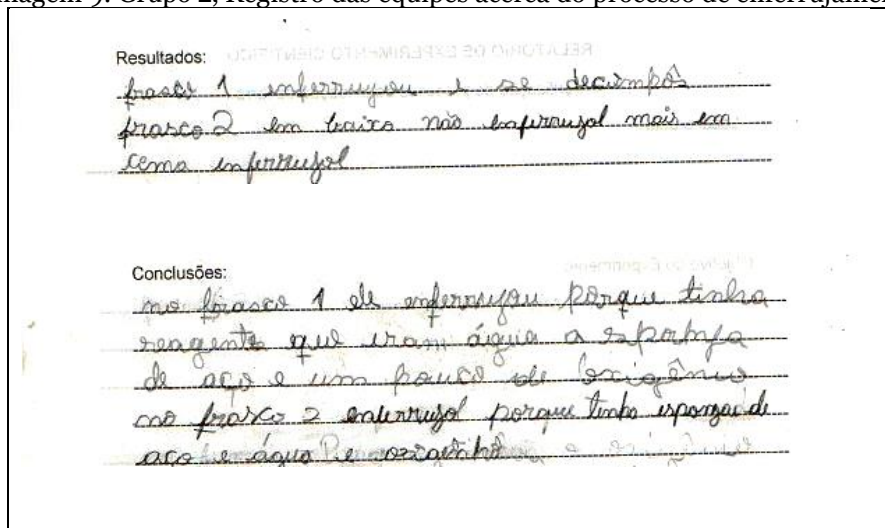 Imagem 9: Grupo 2, Registro das equipes acerca do processo de enferrujamen
Resultados:
frasco 1 enferrujou e se decompôs
frasco 2 em baixo não enferrujol mais em
cema enferrujol
Conclusões:
no frasco 1 ele enferrujou porque tinha
reagente que eram água a esponja
de aço e um pouco de oxigênio
no frasco 2 enferrujol porque tinha esponja de
aço e água e